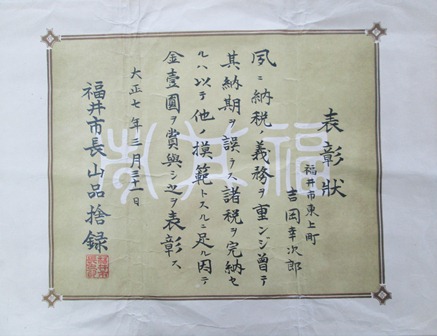 表彰狀
福井市東上町
吉岡幸次郎
夙ニ納税ノ義務ヲ重ンジ曽テ
其納期ヲ誤ラス諸税ヲ完納セ
ルハ以テ他ノ模範トスルニ足ル因テ
金壹圓ヲ賞與シ之ヲ表彰ス
大正七年三月三十一日
福井市長山品捨録
福井市